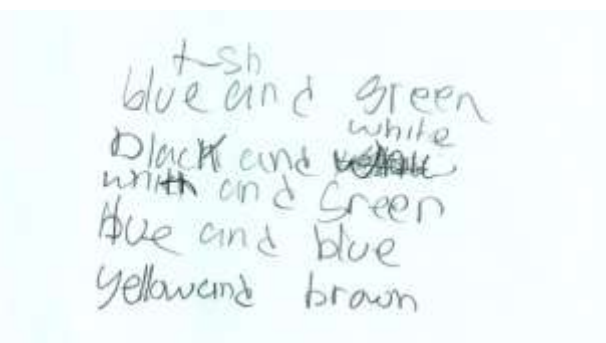 t-sh
blue and green
black and white
and green
blue and blue
yellow and brown